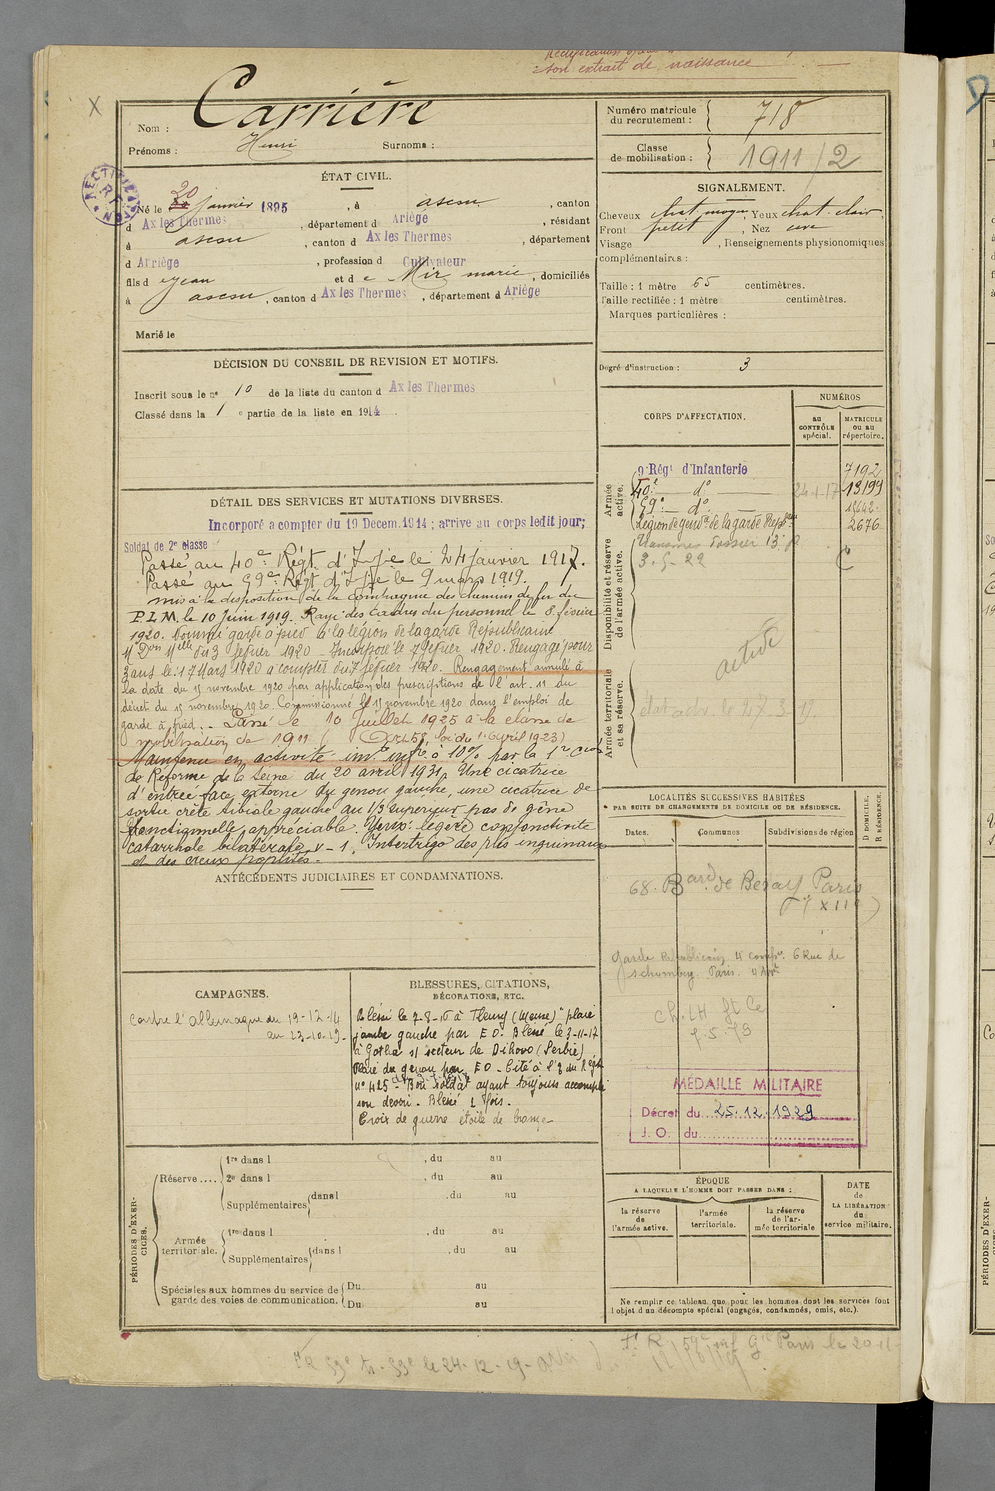 son extrait de naissance
X
Carrière
Nom :
Prénoms : Henri Surnoms :
Numéro matricule
du recrutement : 718
Classe
de mobilisation : 1911/2
ÉTAT CIVIL.
RECTIFICATION
R.F.
20
Né le janvier 1895, à ascou, canton
d Ax les Thermes, département d Ariège, résidant
à ascou, canton d Ax les Thermes, département
d Arriège, profession d Cultivateur
fils d e Jean et d e Mir marie, domiciliés
à ascou, canton d Ax les Thermes, département d Ariège
Marié le
SIGNALEMENT.
Cheveux chat. moyen, Yeux chat. clair
Front petit, Nez
Visage , Renseignements physionomiques
complémentaires :
Taille : 1 mètre 65 centimètres.
Taille rectifiée : 1 mètre centimètres.
Marques particulières :
Degré d'instruction : 3
DÉCISION DU CONSEIL DE REVISION ET MOTIFS.
Inscrit sous le n° 10 de la liste du canton d Ax les Thermes
Classé dans la 1 e partie de la liste en 1914
CORPS D'AFFECTATION.
NUMÉROS
au
CONTRÔLE
spécial.
MATRICULE
OU AU
répertoire.
Armée
active.
9e Régt d'Infanterie 7192
40e d° 24-1-17 13199
59e d° 15642
Légion de gendie de la garde Répne 2676
Disponibilité et réserve
de l'armée active.
dossier 13
3-5-22
active
Armée territoriale
et sa réserve.
état act. le 27-3-19.
DÉTAIL DES SERVICES ET MUTATIONS DIVERSES.
Incorporé a compter du 19 Decem. 1914 ; arrive au corps ledit jour;
Soldat de 2e classe
Passé au 40e Régt d'Infie le 24 janvier 1917.
Passé au 59e Régt d'Infie le 9 mars 1919.
mis à la disposition de la compagnie des chemins de fer du
P.L.M. le 10 Juin 1919. Rayé des cadres du personnel le 8 février
1920. Nommé garde à pied à la légion de la garde Républicaine
Mon Dion Mlle du 3 février 1920 - Incorporé le 7 février 1920. Rengagé pour
3 ans le 17 Mars 1920 à compter du 7 février 1920. Rengagement annulé à
la date du 15 novembre 1920 par application des prescriptions de l'art. 11 du
décret du 15 novembre 1920. Commissionné le 15 novembre 1920 dans l'emploi de
garde à pied. - Passé le 10 Juillet 1925 à la classe de
mobilisation de 1911 (Art 58, loi du 1er Avril 1923)
Maintenu en activité inv. infre à 10% par la 1re Cion
de Réforme de la Seine du 20 avril 1931. Une cicatrice
d'entrée face externe du genou gauche, une cicatrice de
sortie crête tibiale gauche au 1/3 supérieur pas de gêne
fonctionnelle appréciable. Yeux : légère conjonctivite
catarrhale bilatérale v - 1. Intertrigo des plis inguinaux
et des creux poplités.
LOCALITÉS SUCCESSIVES HABITÉES
PAR SUITE DE CHANGEMENTS DE DOMICILE OU DE RÉSIDENCE.
Dates. Communes Subdivisions de région
D DOMICILE.
R RÉSIDENCE.
68. Bard de Bercy Paris
XIIe
Garde Républicaine 4e compie. 6 Rue de
Schomberg Paris. 4 Art
Ch. LH
MEDAILLE MILITAIRE
Décret du 25.12.1929
J. O. du
ANTÉCÉDENTS JUDICIAIRES ET CONDAMNATIONS.
CAMPAGNES.
Contre l'Allemagne du 19-12-14
au 23-10-19-
BLESSURES, CITATIONS,
DÉCORATIONS, ETC.
Blessé le 7-8-16 à Fleury (Meuse) "plaie
jambe gauche par E O. Blessé le 3-11-17
à Gotha s/ secteur de Dihovo (Serbie)
Plaie du genou par E O - Cité à l'O du Régt
n° 425 "Bon soldat ayant toujours accompli
son devoir. Blessé 2 fois.
Croix de guerre étoile de bronze-
PÉRIODES D'EXERCICES.
Réserve.... 1re dans l , du au
2e dans l , du au
Supplémentaires dans l , du au
Armée
territoriale. 1re dans l , du au
Supplémentaires dans l , du au
Spéciales aux hommes du service de
garde des voies de communication. Du au
Du au
ÉPOQUE
A LAQUELLE L'HOMME DOIT PASSER DANS :
la réserve
de
l'armée active.
l'armée
territoriale.
la réserve
de l'armée
territoriale
DATE
de
LA LIBÉRATION
du
service militaire.
Ne remplir ce tableau que pour les hommes dont les services font
l'objet d'un décompte spécial (engagés, condamnés, omis, etc.).